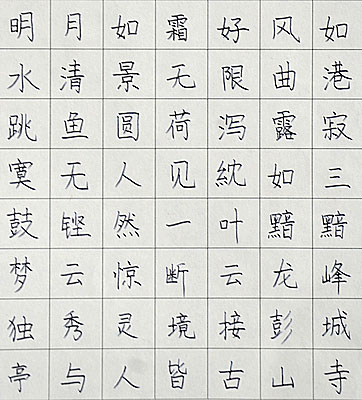 明月如霜好风如
水清景无限曲港
跳鱼圆荷泻露寂
寞无人见紞如三
鼓铿然一叶黯黯
梦云惊断云龙峰
独秀灵境接彭城
亭与人皆古山寺